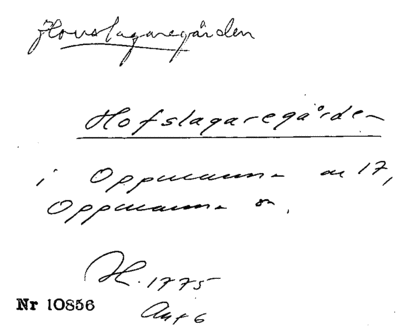 Hovslagaregården
Hofslagaregården
i Oppmanna nr 17,
Oppmanna sn.
H. 1775
Akt 6
Nr 10856